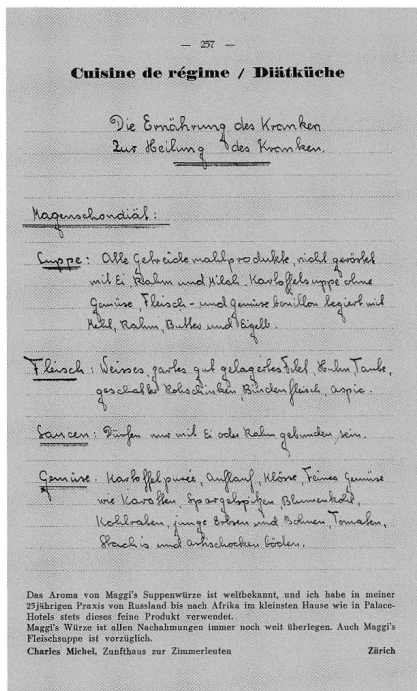 — 257 —
Cuisine de régime / Diätküche
Die Ernährung des Kranken
Zur Heilung des Kranken.
Magenschondiät:
Suppe: Alle Getreidemahlprodukte, nicht geröstet
mit Ei Rahm und Milch. Kartoffelsuppe ohne
Gemüse, Fleisch- und gemüse bouillon legiert mit
Mehl, Rahm, Butter und Eigelb.
Fleisch: Weisses, zartes gut gelagertes Filet, Huhn, Taube,
geschabter Rohschinken, Bündenfleisch, aspic.
Saucen: Dürfen nur mit Ei oder Rahm gebunden sein.
Gemüse. Kartoffelpurée, Auflauf, Klösse, Feines Gemüse
wie Karotten, Spargelspitzen, Blumenkohl,
Kohlraben, junge Erbsen und Bohnen, Tomaten,
Stachis und artischockenböden.
Das Aroma von Maggi's Suppenwürze ist weltbekannt, und ich habe in meiner
25jährigen Praxis von Russland bis nach Afrika im kleinsten Hause wie in Palace-
Hotels stets dieses feine Produkt verwendet.
Maggi's Würze ist allen Nachahmungen immer noch weit überlegen. Auch Maggi's
Fleischsuppe ist vorzüglich.
Charles Michel, Zunfthaus zur Zimmerleuten Zürich